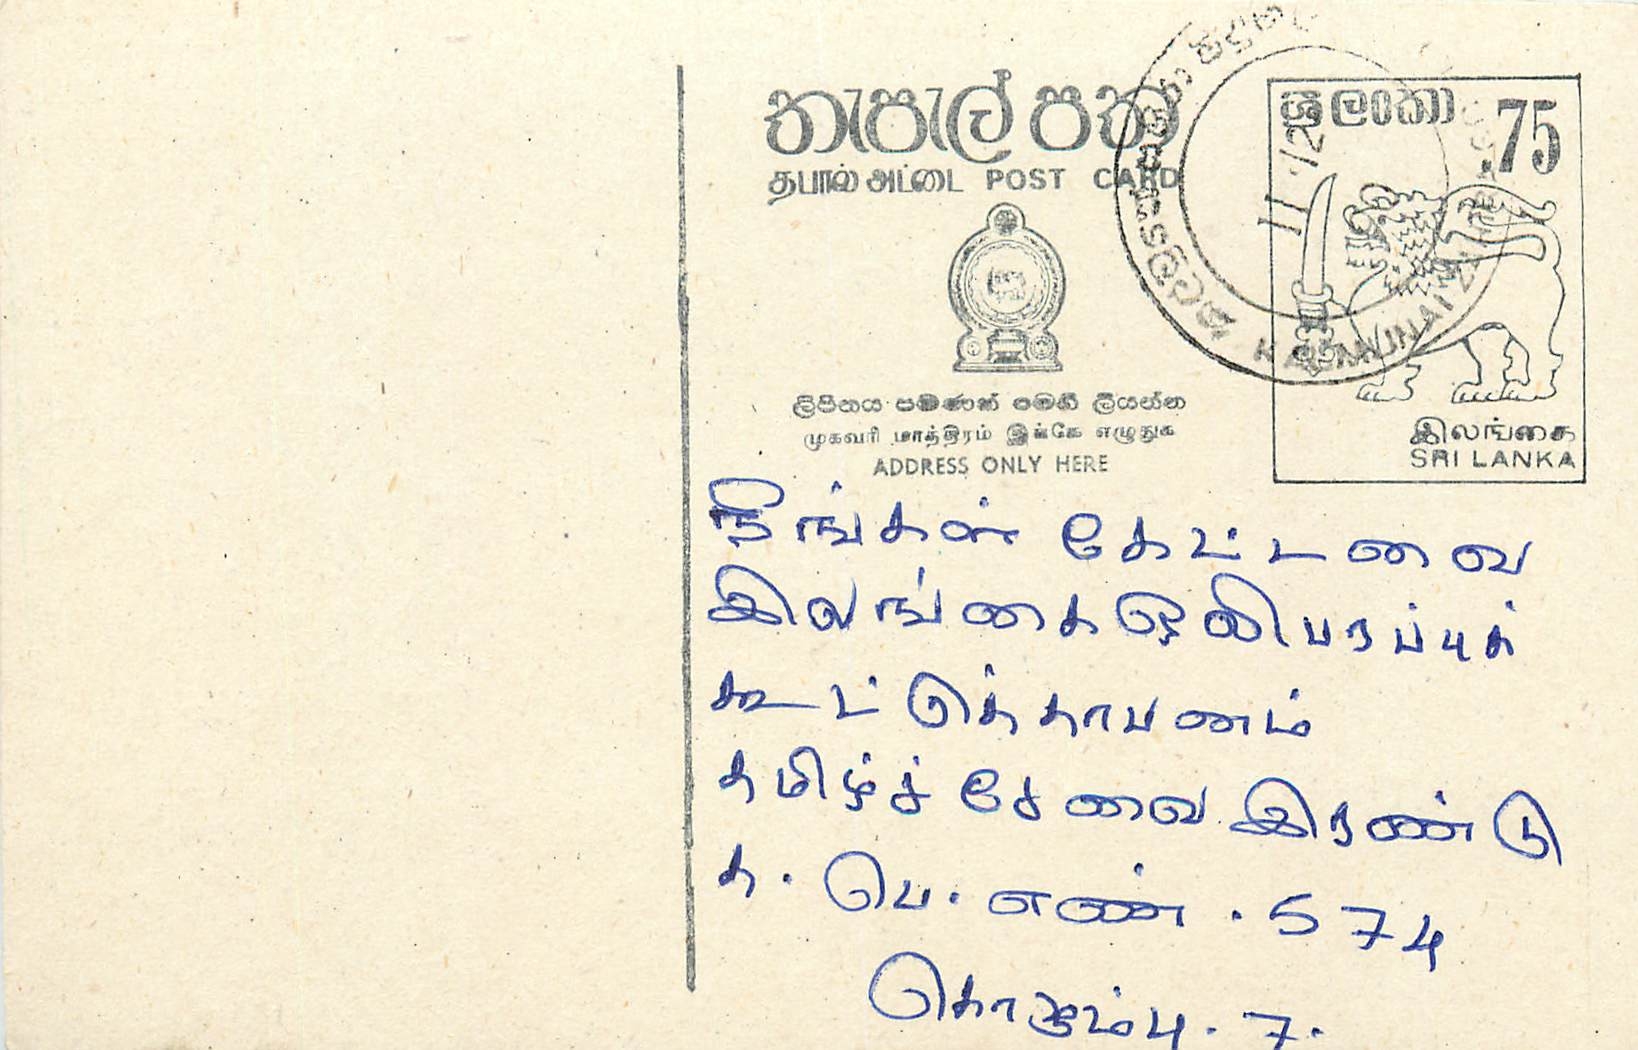 තැපැල් පත
தபால் அட்டை POST CARD
ලිපිනය පමණක් පමණි ලියන්න
முகவரி மாத்திரம் இங்கே எழுதுக
ADDRESS ONLY HERE
ශ්‍රී ලංකා
.75
இலங்கை
SRI LANKA
KALMUNAI
நீங்கள் கேட்டவை
இலங்கை ஒலிபரப்புக்
கூட்டுத்தாபனம்
தமிழ்ச் சேவை இரண்டு
த. பெ. எண். 574
கொழும்பு. 7.